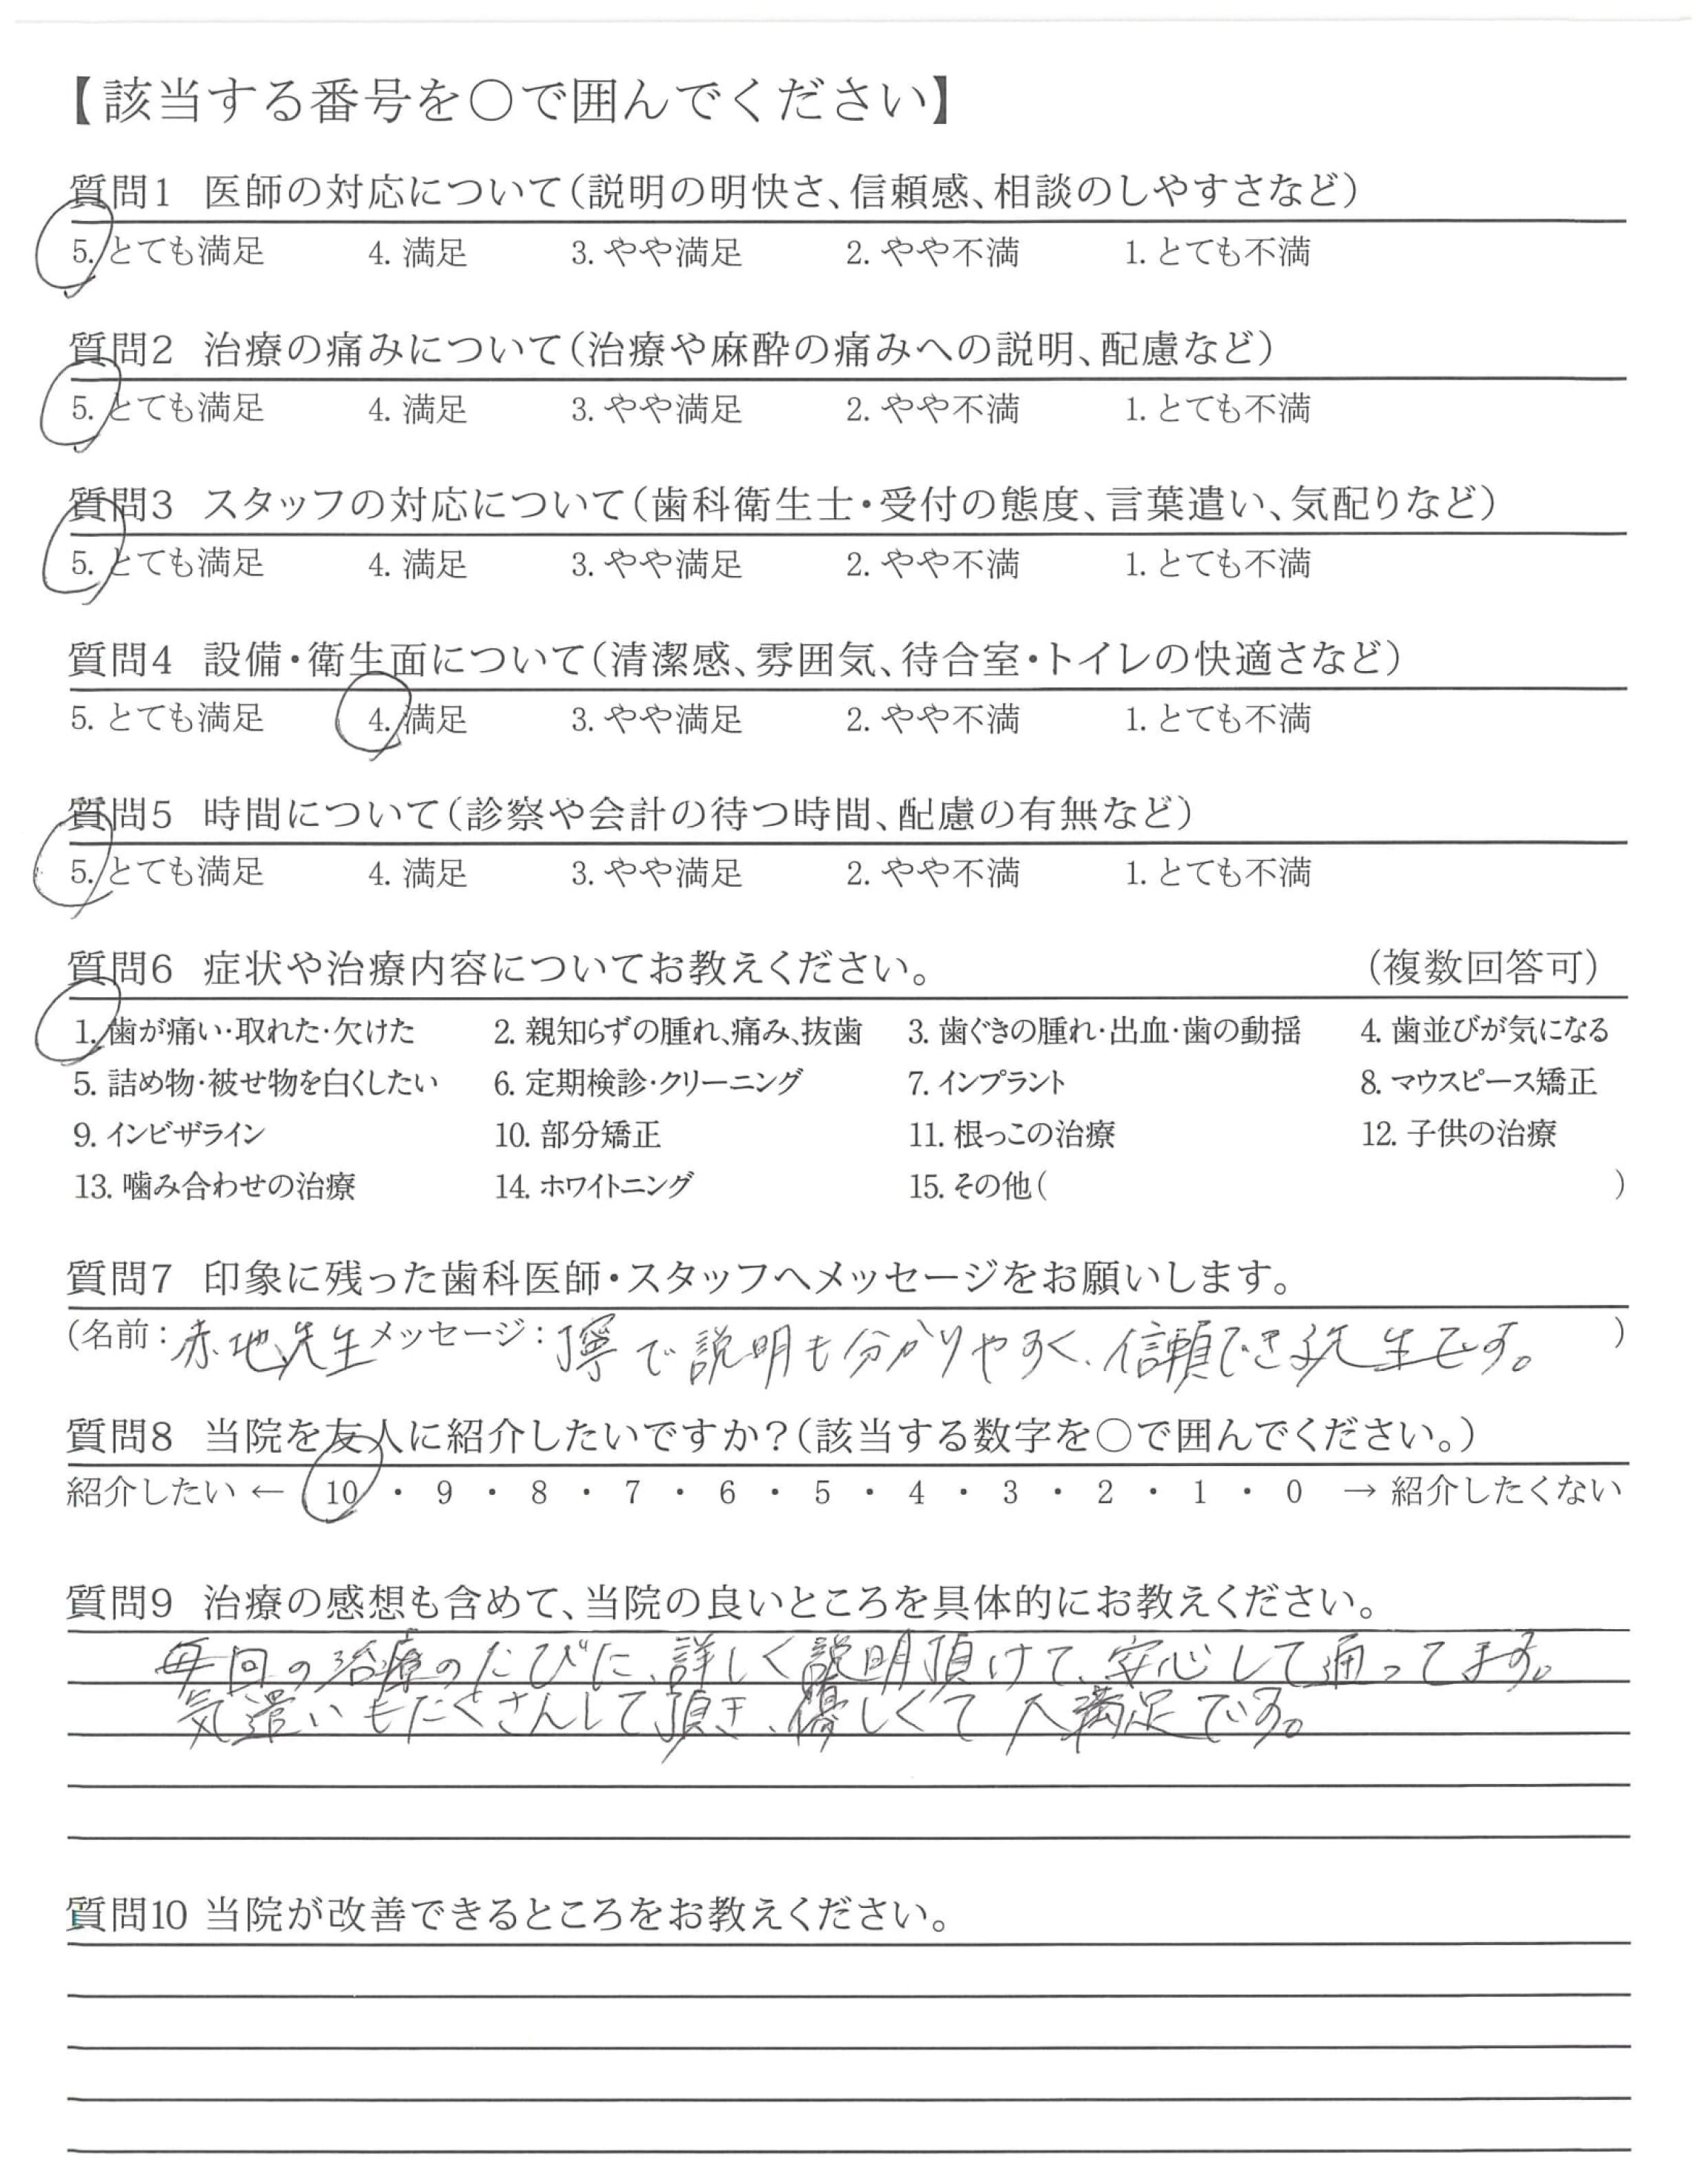 【該当する番号を〇で囲んでください】
質問1 医師の対応について(説明の明快さ、信頼感、相談のしやすさなど)
5. とても満足 4. 満足 3. やや満足 2. やや不満 1. とても不満
質問2 治療の痛みについて(治療や麻酔の痛みへの説明、配慮など)
5. とても満足 4. 満足 3. やや満足 2. やや不満 1. とても不満
質問3 スタッフの対応について(歯科衛生士・受付の態度、言葉遣い、気配りなど)
5. とても満足 4. 満足 3. やや満足 2. やや不満 1. とても不満
質問4 設備・衛生面について(清潔感、雰囲気、待合室・トイレの快適さなど)
5. とても満足 4. 満足 3. やや満足 2. やや不満 1. とても不満
質問5 時間について(診察や会計の待つ時間、配慮の有無など)
5. とても満足 4. 満足 3. やや満足 2. やや不満 1. とても不満
質問6 症状や治療内容についてお教えください。 (複数回答可)
1. 歯が痛い・取れた・欠けた 2. 親知らずの腫れ、痛み、抜歯 3. 歯ぐきの腫れ・出血・歯の動揺 4. 歯並びが気になる
5. 詰め物・被せ物を白くしたい 6. 定期検診・クリーニング 7. インプラント 8. マウスピース矯正
9. インビザライン 10. 部分矯正 11. 根っこの治療 12. 子供の治療
13. 噛み合わせの治療 14. ホワイトニング 15. その他( )
質問7 印象に残った歯科医師・スタッフへメッセージをお願いします。
(名前:赤地先生 メッセージ:丁寧で説明も分かりやすく、信頼できる先生です。 )
質問8 当院を友人に紹介したいですか?(該当する数字を〇で囲んでください。)
紹介したい ← 10 ・ 9 ・ 8 ・ 7 ・ 6 ・ 5 ・ 4 ・ 3 ・ 2 ・ 1 ・ 0 → 紹介したくない
質問9 治療の感想も含めて、当院の良いところを具体的にお教えください。
毎回の治療のたびに、詳しく説明頂けて、安心して通ってます。
気遣いもたくさんして頂き、優しくて大満足です。
質問10 当院が改善できるところをお教えください。